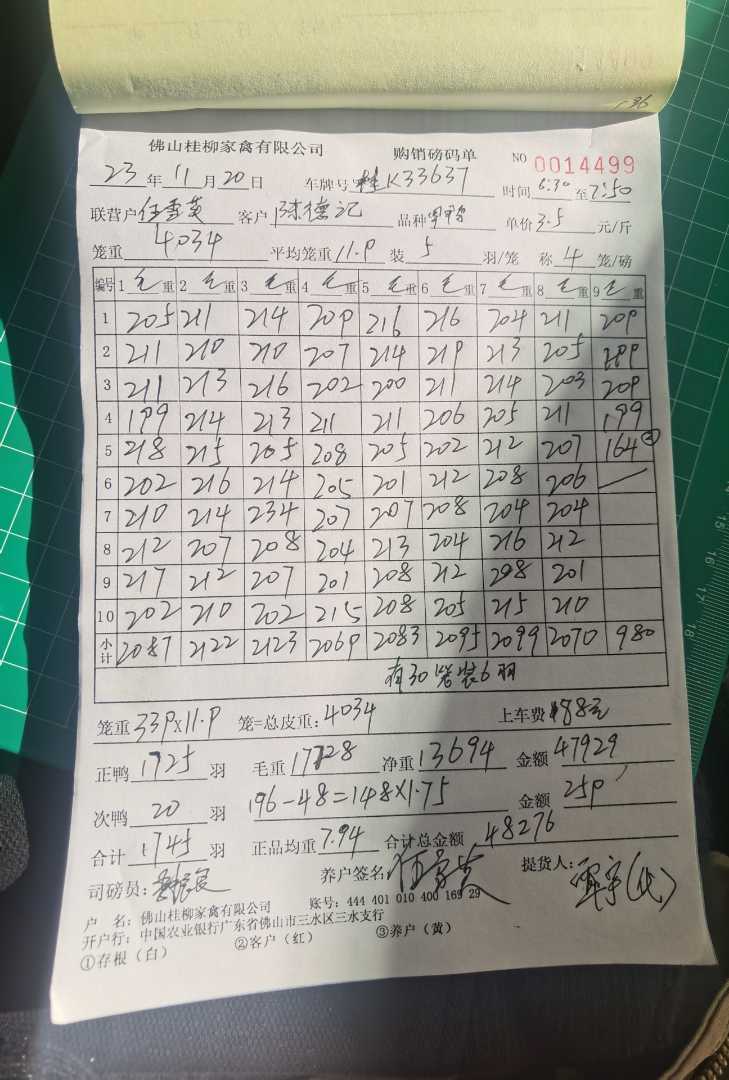 佛山桂柳家禽有限公司 购销磅码单 NO 0014499
23年11月20日 车牌号 桂K33637 时间 6:30 至 7:50
联营户 任雪英 客户 陈德记 品种 单价 3.5 元/斤
笼重 4034 平均笼重 11.9 装 5 羽/笼 称 4 笼/磅
编号 1 毛重 2 毛重 3 毛重 4 毛重 5 毛重 6 毛重 7 毛重 8 毛重 9 毛重
1 205 211 214 209 216 216 204 211 209
2 211 210 210 207 214 219 213 205 199
3 211 213 216 202 200 211 214 203 209
4 199 214 213 211 211 206 205 211 199
5 218 215 205 208 205 202 212 207 164
6 202 216 214 205 201 212 208 206
7 210 214 234 207 207 208 204 204
8 212 207 208 204 213 204 216 212
9 217 212 207 201 208 212 208 201
10 202 210 202 215 208 205 215 210
小计 2087 2122 2123 2069 2083 2095 2099 2070 980
有30笼装6羽
笼重 339×11.9 笼=总皮重: 4034 上车费 488元
正鸭 1725 羽 毛重 17728 净重 13694 金额 47929
次鸭 20 羽 196-48=148×1.75 金额 259
合计 1745 羽 正品均重 7.94 合计总金额 48276
司磅员: 养户签名 提货人: (代)
户 名: 佛山桂柳家禽有限公司 账号: 444 401 010 400 169 29
开户行: 中国农业银行广东省佛山市三水区三水支行
①存根(白) ②客户(红) ③养户(黄)